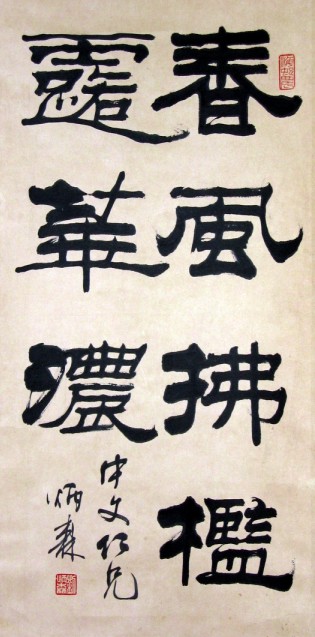 春風拂檻
露華濃
文仁兄
炳森